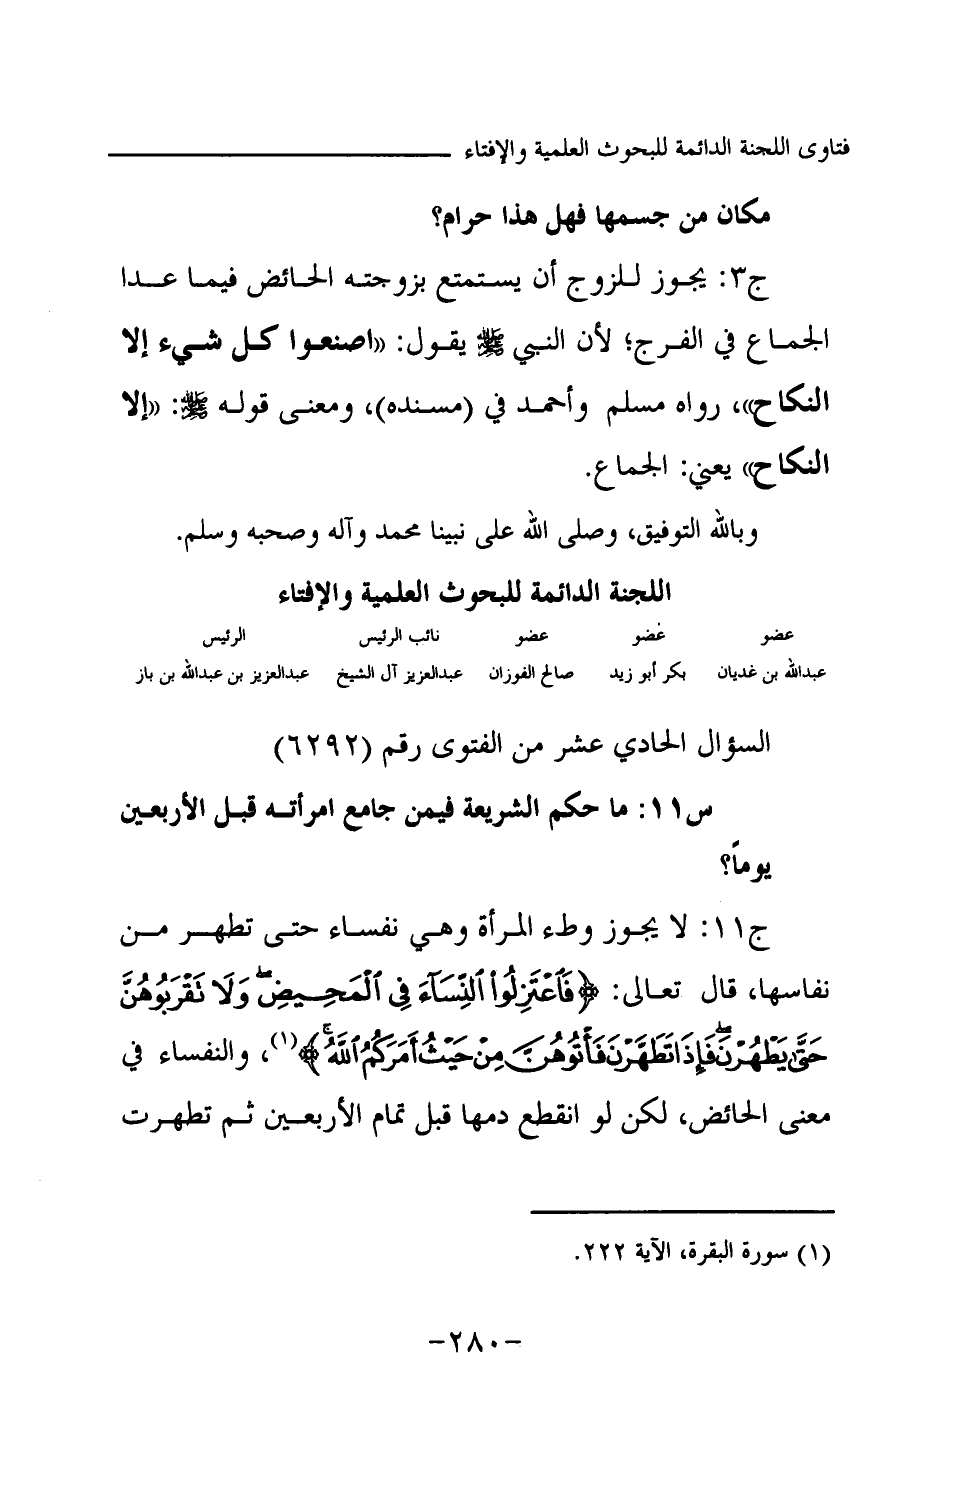 فتاوى اللجنة الدائمة للبحوث العلمية والإفتاء
مكان من جسمها فهل هذا حرام؟
ج٣: يجوز للزوج أن يستمتع بزوجته الحائض فيما عدا
الجماع في الفرج؛ لأن النبي ﷺ يقول: «اصنعوا كل شيء إلا
النكاح»، رواه مسلم وأحمد في (مسنده)، ومعنى قوله ﷺ: «إلا
النكاح» يعني: الجماع.
وبالله التوفيق، وصلى الله على نبينا محمد وآله وصحبه وسلم.
اللجنة الدائمة للبحوث العلمية والإفتاء
عضو عضو عضو نائب الرئيس الرئيس
عبدالله بن غديان بكر أبو زيد صالح الفوزان عبدالعزيز آل الشيخ عبدالعزيز بن عبدالله بن باز
السؤال الحادي عشر من الفتوى رقم (٦٢٩٢)
س١١: ما حكم الشريعة فيمن جامع امرأته قبل الأربعين
يوماً؟
ج١١: لا يجوز وطء المرأة وهي نفساء حتى تطهر من
نفاسها، قال تعالى: ﴿فَٱعۡتَزِلُواْ ٱلنِّسَآءَ فِي ٱلۡمَحِيضِۖ وَلَا تَقۡرَبُوهُنَّ
حَتَّىٰ يَطۡهُرۡنَۖ فَإِذَا تَطَهَّرۡنَ فَأۡتُوهُنَّ مِنۡ حَيۡثُ أَمَرَكُمُ ٱللَّهُۚ﴾(١)، والنفساء في
معنى الحائض، لكن لو انقطع دمها قبل تمام الأربعين ثم تطهرت
(١) سورة البقرة، الآية ٢٢٢.
-٢٨٠-